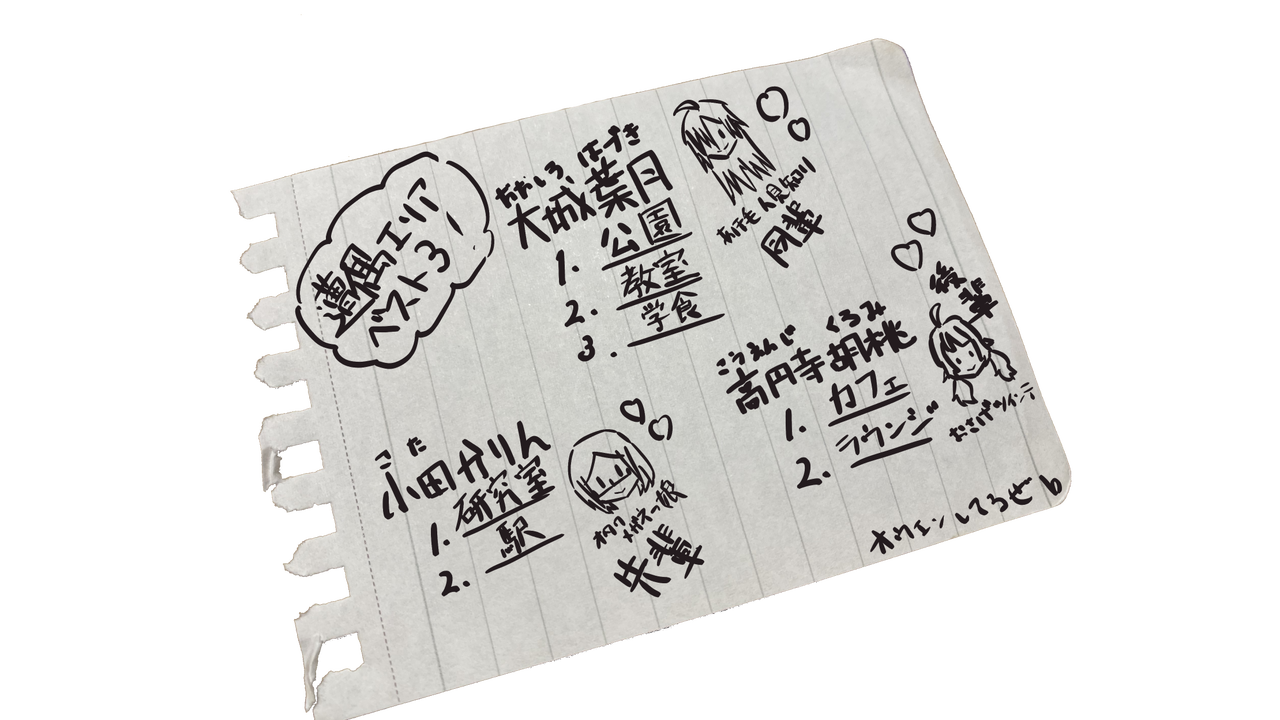 遭遇エリア
ベスト3!
おおしろ はづき
大城葉月
1. 公園
2. 教室
3. 学食
あほ毛 人見知り
同輩
こうえんじ くるみ
高円寺胡桃
1. カフェ
2. ラウンジ
後輩
おさげツインテ
こだ
小田かりん
1. 研究室
2. 駅
メガネっ娘
先輩
オウエンしてるぜb